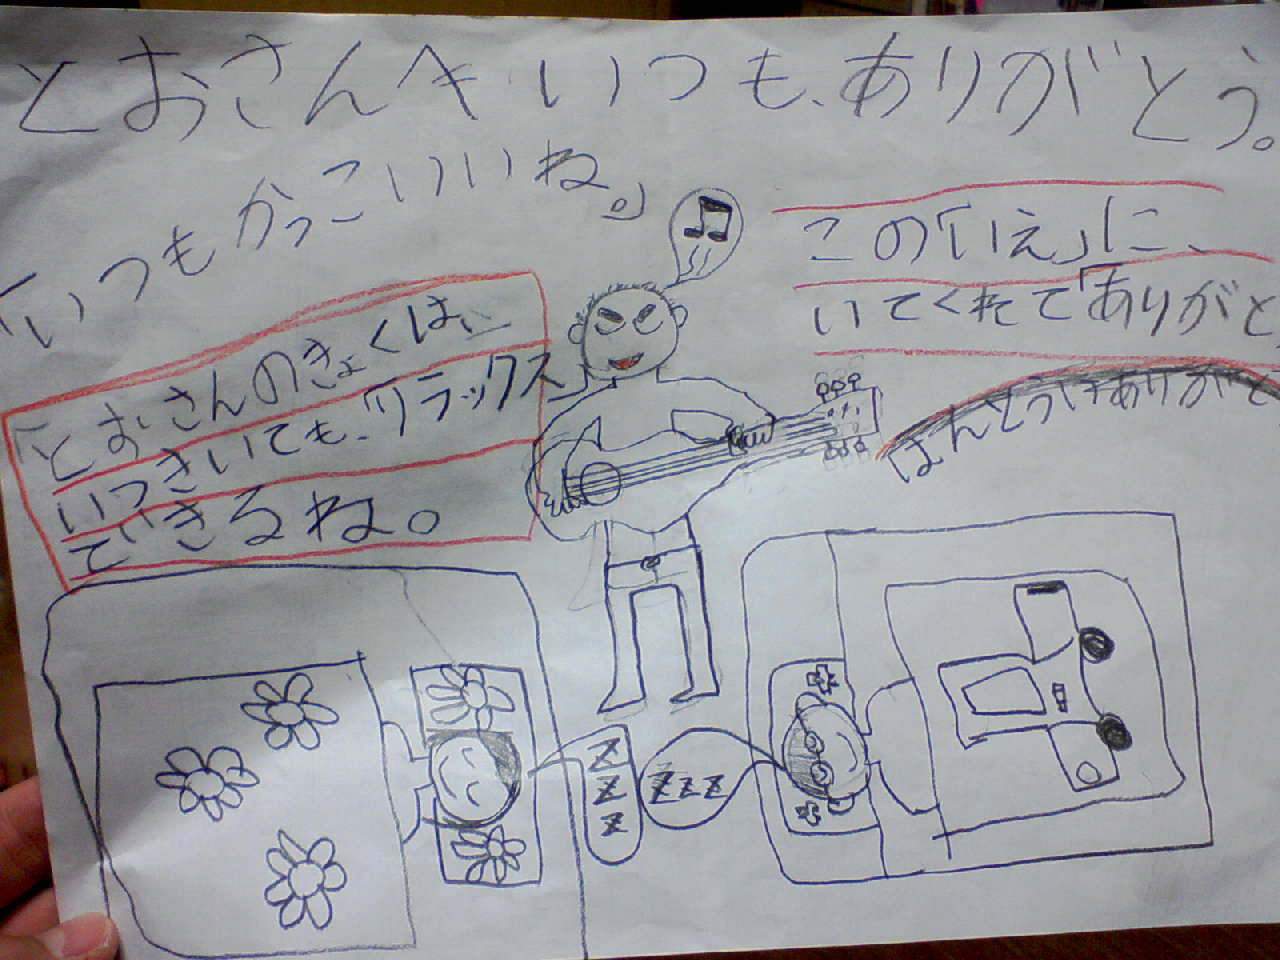 とおさんへ いつも、ありがとう。
「いつもかっこいいね。」
この「いえ」に、
いてくれて「ありがと
「とおさんのきょくは、
いつきいても、「リラックス」
できるね。
ほんとうにありがと
Z
Z
Z
ZZZ